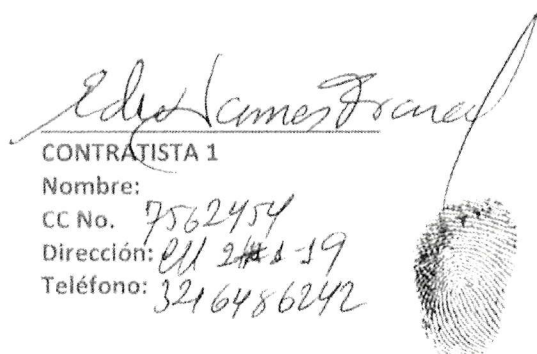 James
CONTRATISTA 1
Nombre:
CC No. 7562454
Dirección: Cll 2 # 1-19
Teléfono: 3216486242